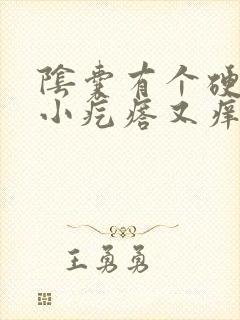 陰囊有个硬
小疙瘩又痒
王勇勇